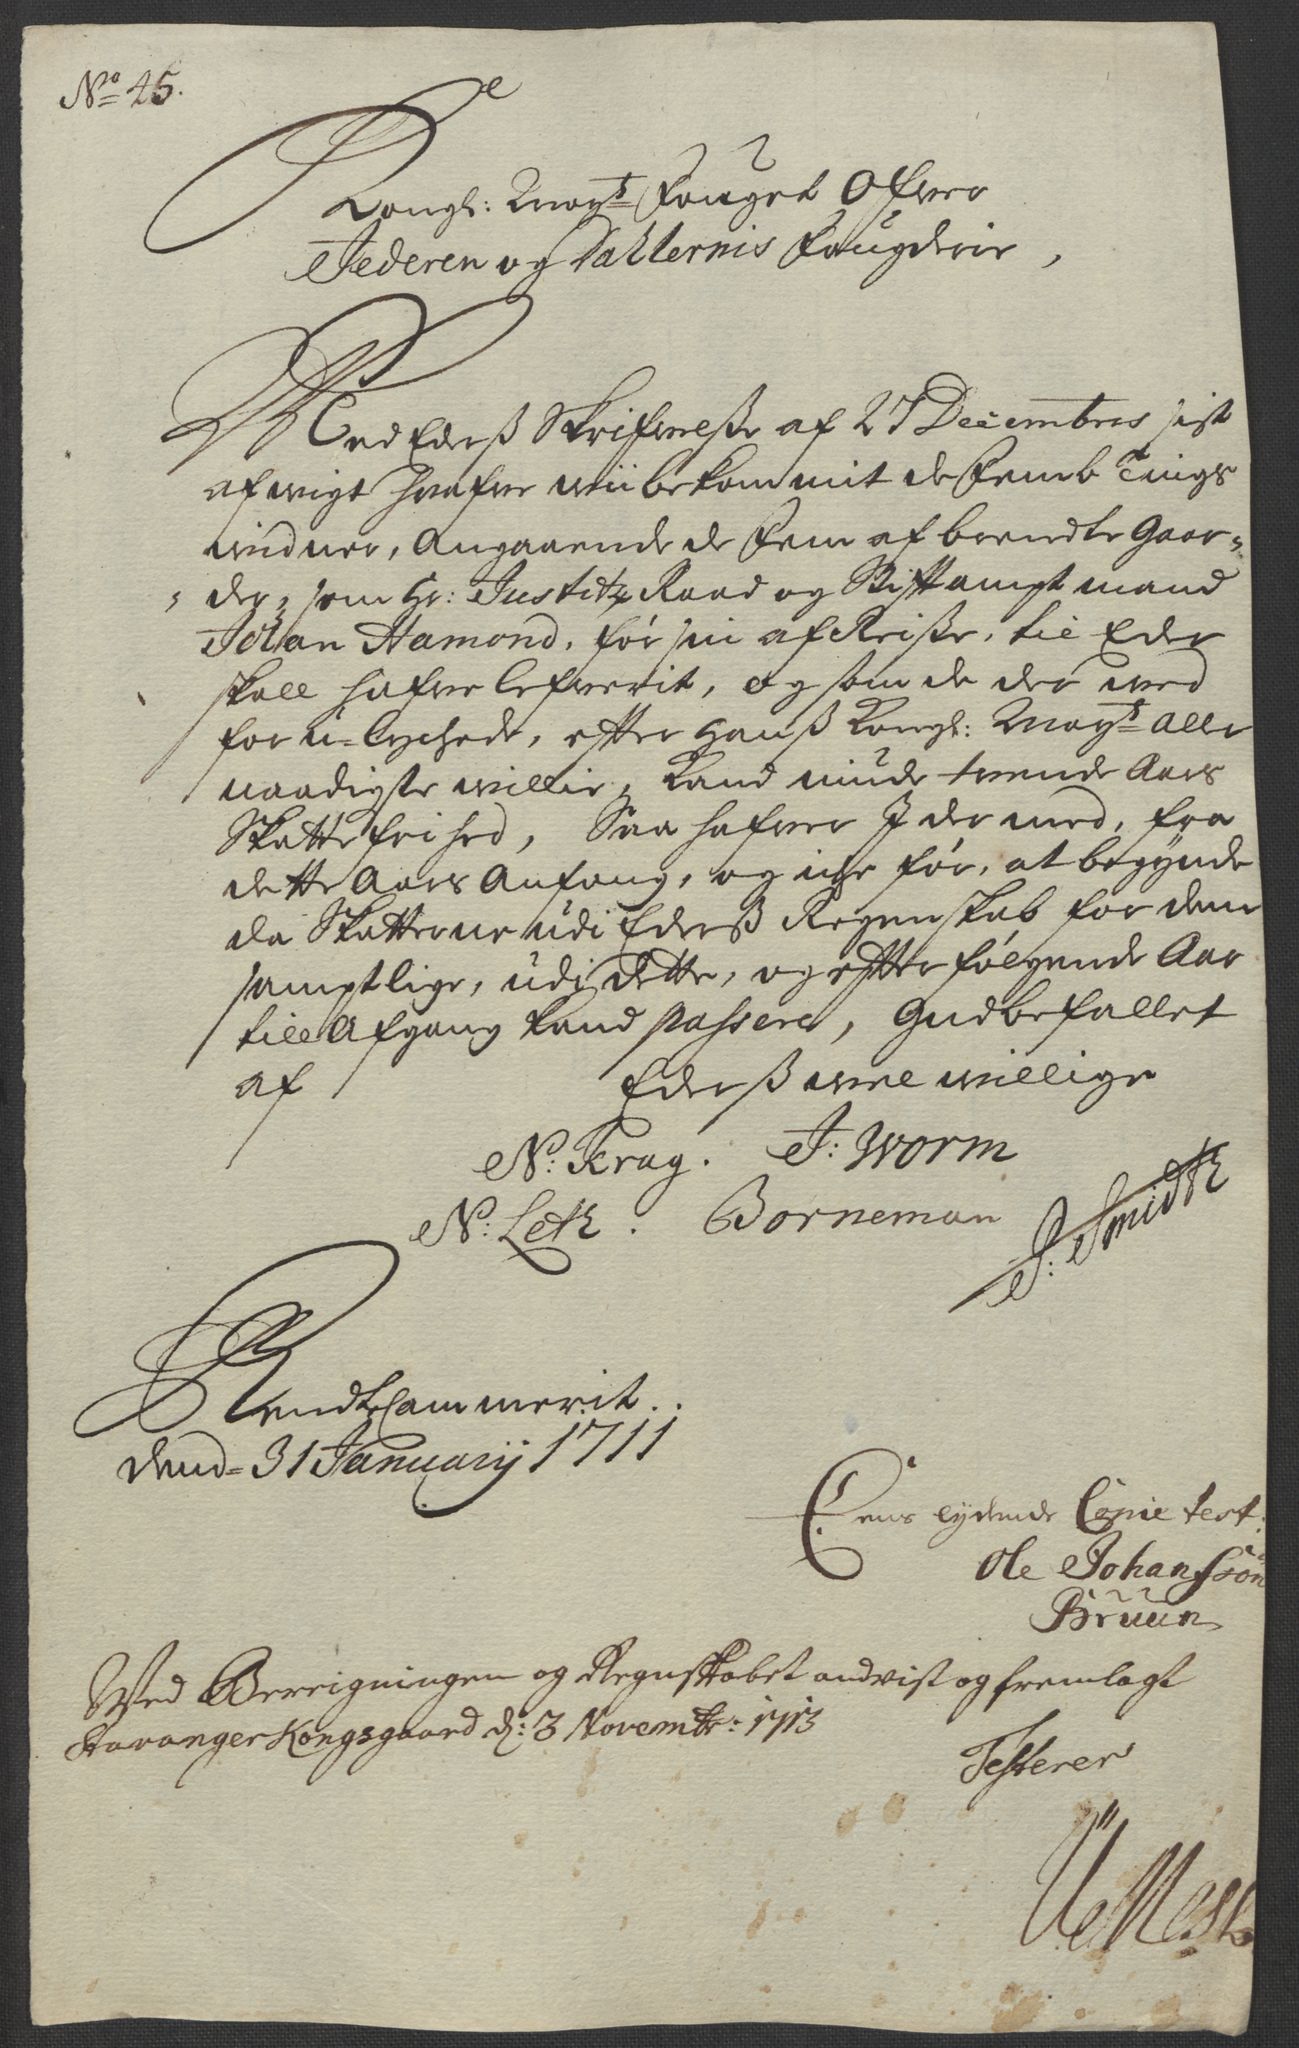 No 45.
Kongl: Mayts Fouget Ofver
Jederen og Dahlernis Fougderie,
Med Eders Skrifvelse af 27 Decembris sist
afvigt hafve wii bekommit de Femb Tings
vidner, Angaaende de Fem afbrendte Gaar-
der, som Hr: Justitz Raad og Stiftampt mand
Johan Hamond, før sin afReise, til Eder
skall hafve lefverit, og som de der ved
foru-lychede, efter Hans Kongl: Mayts Aller
naadigste willie, Kand niude trende Aars
Skatte frihed, Saa hafver I der med, fra
dette Aars Anfang, og icke før, at begynde
da Skatterne udi Eders Regenskab for dem
samptlige, udj dette, og efter følgende Aar
till Afgang kand passere, Gud befallet
af Eders vel willige
N: Krag. J: Worm
N: Leth. Borneman J: Smidth
Rendte Cammerit.
dend 31 Januarij 1711
Eens lydende Copie test:
Ole Johansson
Bruun
Wed Bereigningen og Regnskabet andvist og fremlagt
Stavanger Kongsgaard d: 3 Novembr: 1713
Testerer